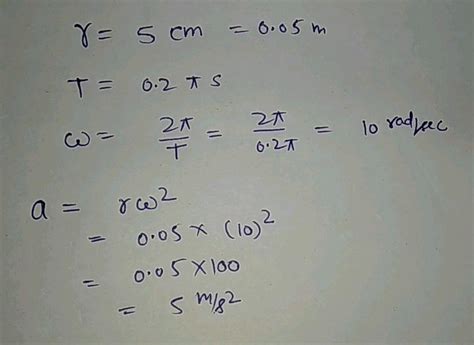 r = 5 cm = 0.05 m
T = 0.2 π s
ω = 2π/T = 2π/0.2π = 10 rad/sec
a = rω²
= 0.05 × (10)²
= 0.05 × 100
= 5 m/s²